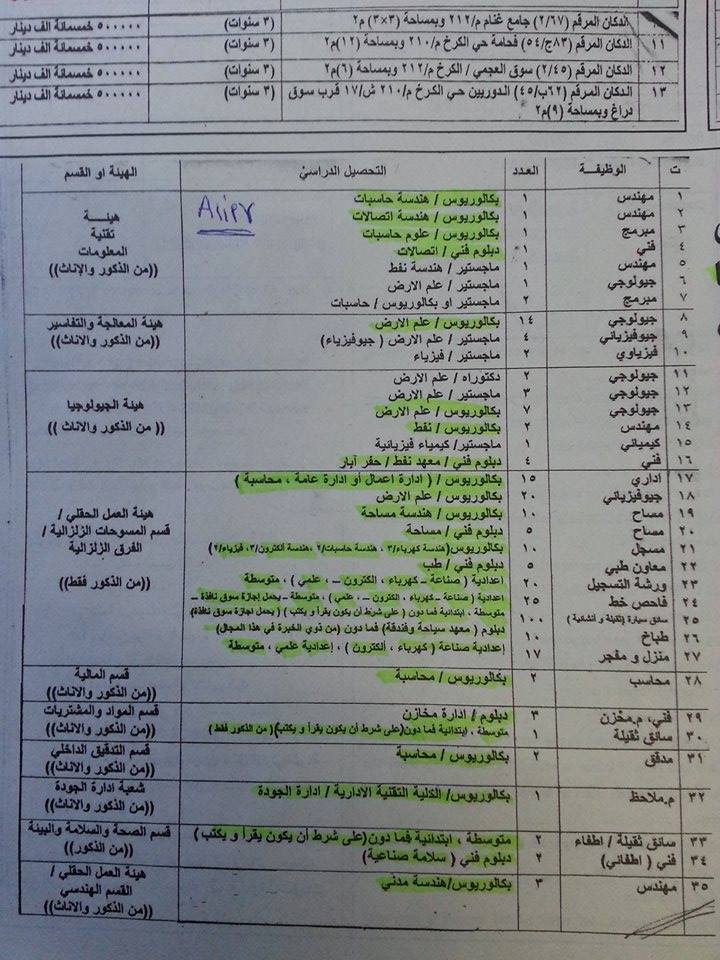 الدكان المرقم (٢/٦٧) جامع غنام م/٢١٢ وبمساحة (٣×٣) م٢ (٣ سنوات) ٥٠٠٠٠٠ خمسمائة الف دينار
١١ الدكان المرقم (٨٣ج/٥٤) فحامة حي الكرخ م/٢١٠ وبمساحة (١٢)م٢ (٣ سنوات) ٥٠٠٠٠٠ خمسمائة الف دينار
١٢ الدكان المرقم (٢/٤٥) سوق العجمي / الكرخ م/٢١٢ وبمساحة (٦)م٢ (٣ سنوات) ٥٠٠٠٠٠ خمسمائة الف دينار
١٣ الدكان المرقم (٦٢ب/٤٥) الدوريين حي الكرخ م/٢١٠ ش/١٧ قرب سوق (٣ سنوات) ٥٠٠٠٠٠ خمسمائة الف دينار
دراغ وبمساحة (٩)م٢
ت الوظيفة العدد التحصيل الدراسي الهيئة او القسم
١ مهندس ١ بكالوريوس / هندسة حاسبات
٢ مهندس ١ بكالوريوس / هندسة اتصالات هيئة
٣ مبرمج ١ بكالوريوس / علوم حاسبات تقنية
٤ فني ١ دبلوم فني / اتصالات المعلومات
٥ مهندس ١ ماجستير / هندسة نفط ((من الذكور والإناث))
٦ جيولوجي ١ ماجستير / علم الارض
٧ مبرمج ٢ ماجستير او بكالوريوس / حاسبات
٨ جيولوجي ١٤ بكالوريوس / علم الارض هيئة المعالجة والتفاسير
٩ جيوفيزيائي ٤ ماجستير / علم الارض ( جيوفيزياء) ((من الذكور والاناث))
١٠ فيزياوي ٢ ماجستير / فيزياء
١١ جيولوجي ٢ دكتوراه / علم الارض
١٢ جيولوجي ٣ ماجستير / علم الارض
١٣ جيولوجي ٧ بكالوريوس / علم الارض هيئة الجيولوجيا
١٤ مهندس ٢ بكالوريوس / نفط (( من الذكور والاناث ))
١٥ كيميائي ١ ماجستير/ كيمياء فيزيائية
١٦ فني ٤ دبلوم فني / معهد نفط / حفر آبار
١٧ اداري ١٥ بكالوريوس / ( ادارة اعمال أو ادارة عامة ، محاسبة )
١٨ جيوفيزيائي ٢٠ بكالوريوس / علم الارض
١٩ مساح ١٠ بكالوريوس / هندسة مساحة هيئة العمل الحقلي /
٢٠ مساح ٥ دبلوم فني / مساحة قسم المسوحات الزلزالية /
٢١ مسجل ١٠ بكالوريوس(هندسة كهرباء/٣ ، هندسة حاسبات/٢ ،هندسة ألكترون/٣، فيزياء/٢) الفرق الزلزالية
٢٢ معاون طبي ٥ دبلوم فني / طب
٢٣ ورشة التسجيل ٢٠ إعدادية ( صناعة – كهرباء ، الكترون – ، علمي ) ، متوسطة ((من الذكور فقط))
٢٤ فاحص خط ٢٥ اعدادية (صناعة – كهرباء ، الكترون – ، علمي ) ، متوسطة – يحمل إجازة سوق نافذة –
٢٥ سائق سيارة (ثقيلة و أنشائية) ١٠٠ متوسطة ، ابتدائية فما دون ( على شرط أن يكون يقرأ و يكتب ) ( يحمل اجازة سوق نافذة)
٢٦ طباخ ١٠ دبلوم ( معهد سياحة وفندقة) فما دون (من ذوي الخبرة في هذا المجال)
٢٧ منزل و مفجر ١٧ إعدادية صناعة ( كهرباء ، ألكترون ) ، إعدادية علمي ، متوسطة
٢٨ محاسب ٢ بكالوريوس / محاسبة قسم المالية
((من الذكور والاناث))
٢٩ فني، م.مخزن ٣ دبلوم / ادارة مخازن قسم المواد والمشتريات
٣٠ سائق ثقيلة ١ متوسطة ، ابتدائية فما دون(على شرط أن يكون يقرأ و يكتب)( من الذكور فقط ) ((من الذكور والاناث))
٣١ مدقق ٢ بكالوريوس / محاسبة قسم التدقيق الداخلي
((من الذكور والاناث))
٣٢ م.ملاحظ ١ بكالوريوس/ الكلية التقنية الادارية / ادارة الجودة شعبة ادارة الجودة
((من الذكور والاناث))
٣٣ سائق ثقيلة / اطفاء ٢ متوسطة ، ابتدائية فما دون(على شرط أن يكون يقرأ و يكتب ) قسم الصحة والسلامة والبيئة
٣٤ فني ( اطفائي) ٢ دبلوم فني ( سلامة صناعية) ((من الذكور))
٣٥ مهندس ٣ بكالوريوس/هندسة مدني هيئة العمل الحقلي /
القسم الهندسي
((من الذكور والاناث))